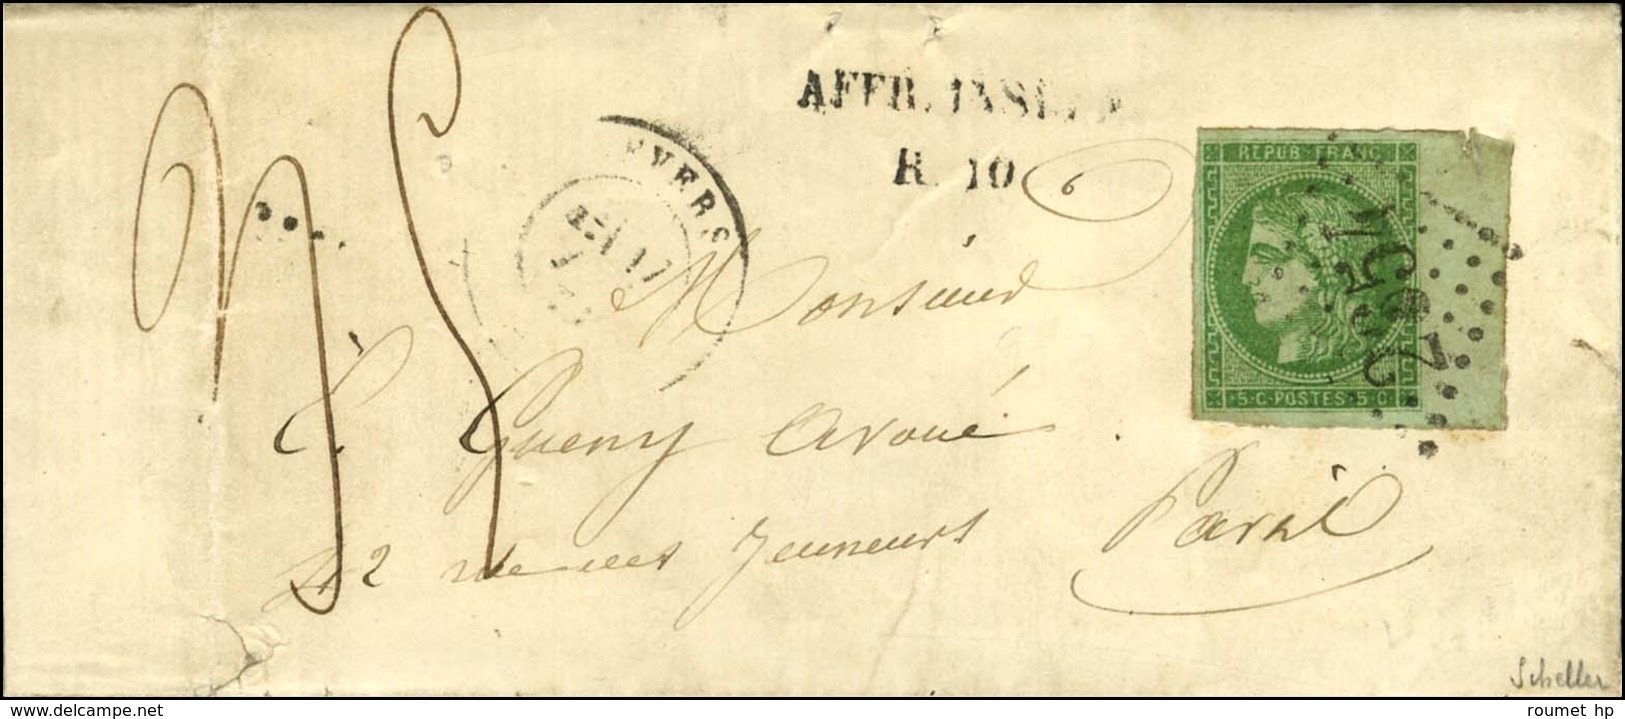 25
AFFR. INSUFF
R. 10
NEVERS
17
REPUB FRANC
2654
5·C·POSTES·5·C
Monsieur
Gueny avoué
42 rue des Jeuneurs Paris
Scheller
www.delcampe.net
roumet hp